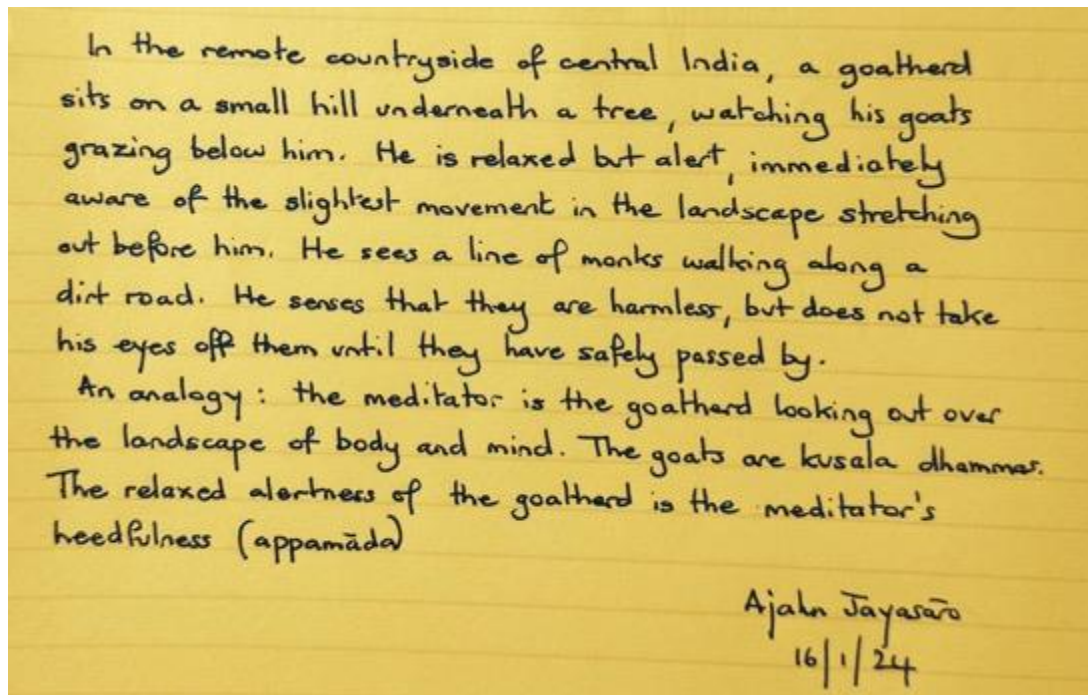 In the remote countryside of central India, a goatherd
sits on a small hill underneath a tree, watching his goats
grazing below him. He is relaxed but alert, immediately
aware of the slightest movement in the landscape stretching
out before him. He sees a line of monks walking along a
dirt road. He senses that they are harmless, but does not take
his eyes off them until they have safely passed by.
An analogy: the meditator is the goatherd looking out over
the landscape of body and mind. The goats are kusala dhammas.
The relaxed alertness of the goatherd is the meditator's
heedfulness (appamāda)
Ajahn Jayasāro
16/1/24